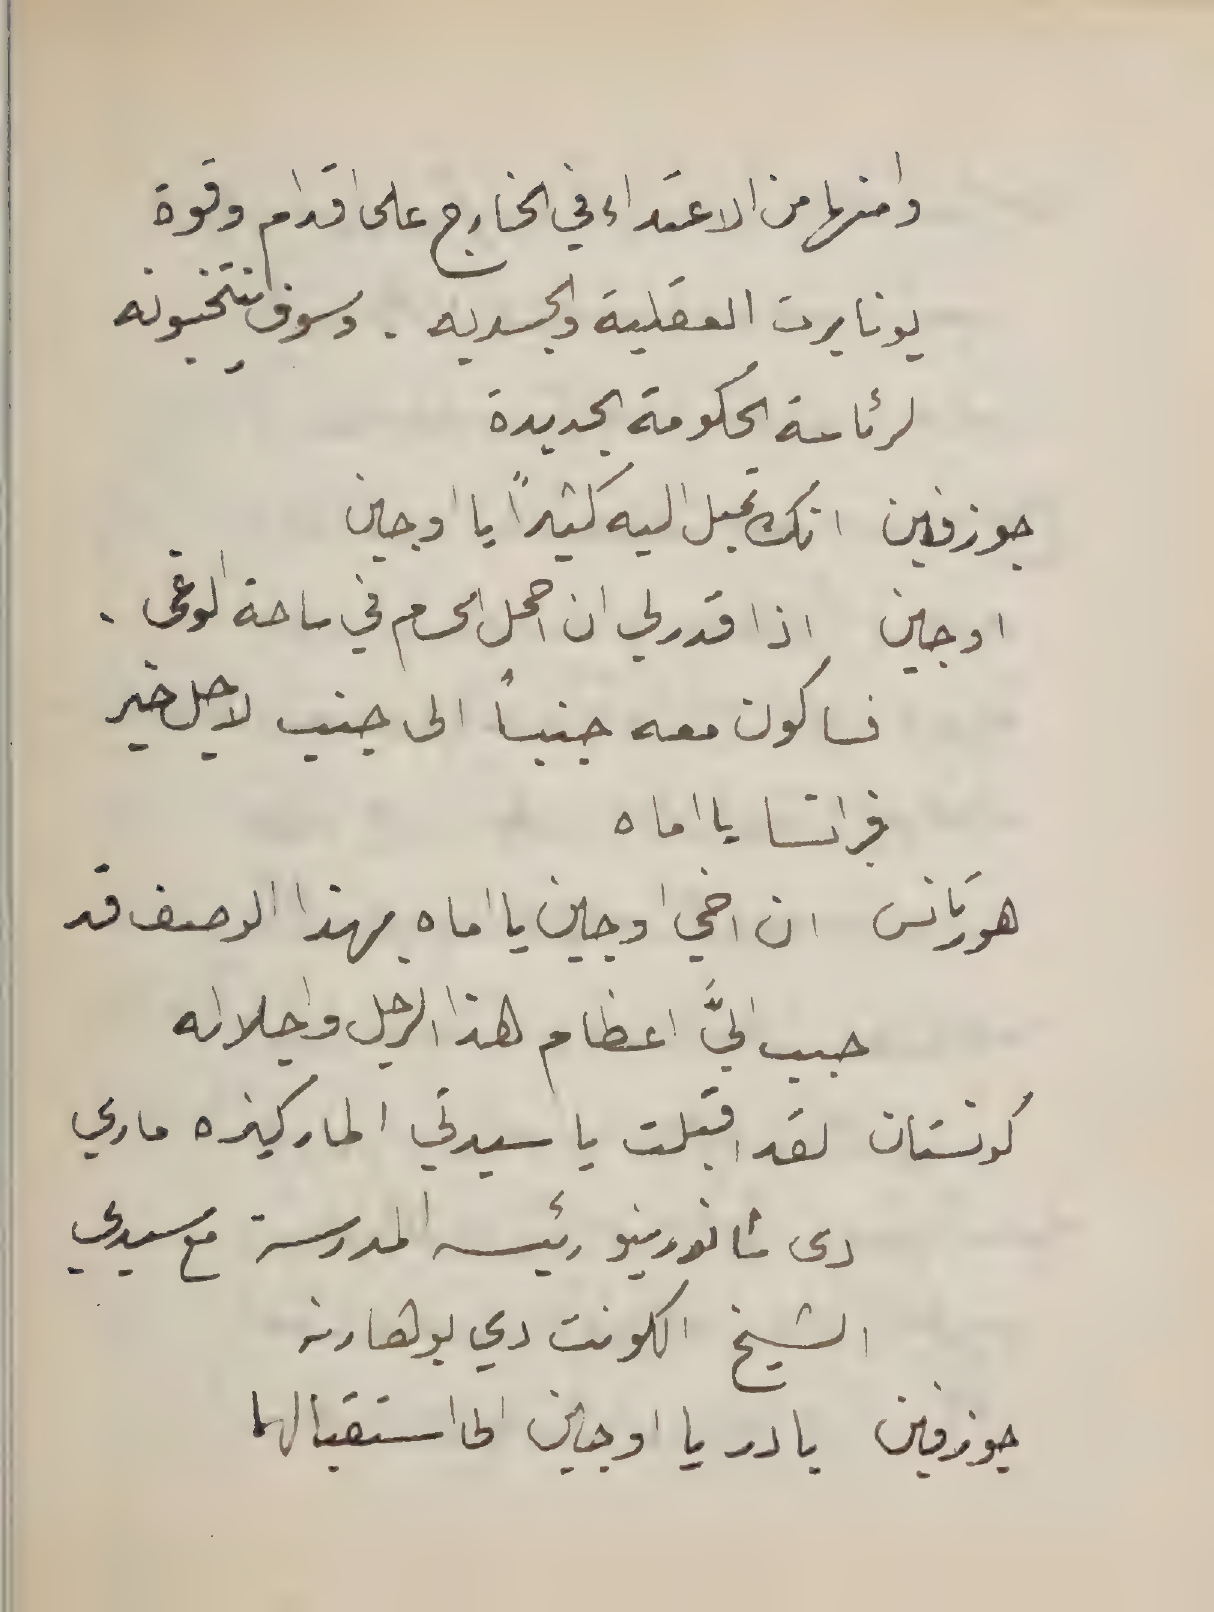 وامنها من الاعتداء في الخارج على اقدام وقوة
بونابرت العقلية والجسديه . وسوف ينتخبونه
لرئاسة الحكومة الجديدة
جوزفين انك تميل اليه كثيراً يا اوجين
اوجين اذا قدر لي ان احمل الحسام في ساحة الوغى .
فساكون معه جنباً الى جنب لاجل خير
فرانسا يا اماه
هورتانس ان اخي اوجين يا اماه بهذا الوصف قد
حبب اليَّ اعظام هذا الرجل واجلاله
كونستان لقد اقبلت يا سيدتي الماركيزه ماري
دى شانورينو رئيسه المدرسة مع سيدي
الشيخ الكونت دي بوهارنه
جوزفين بادر يا اوجين الى استقبالهما